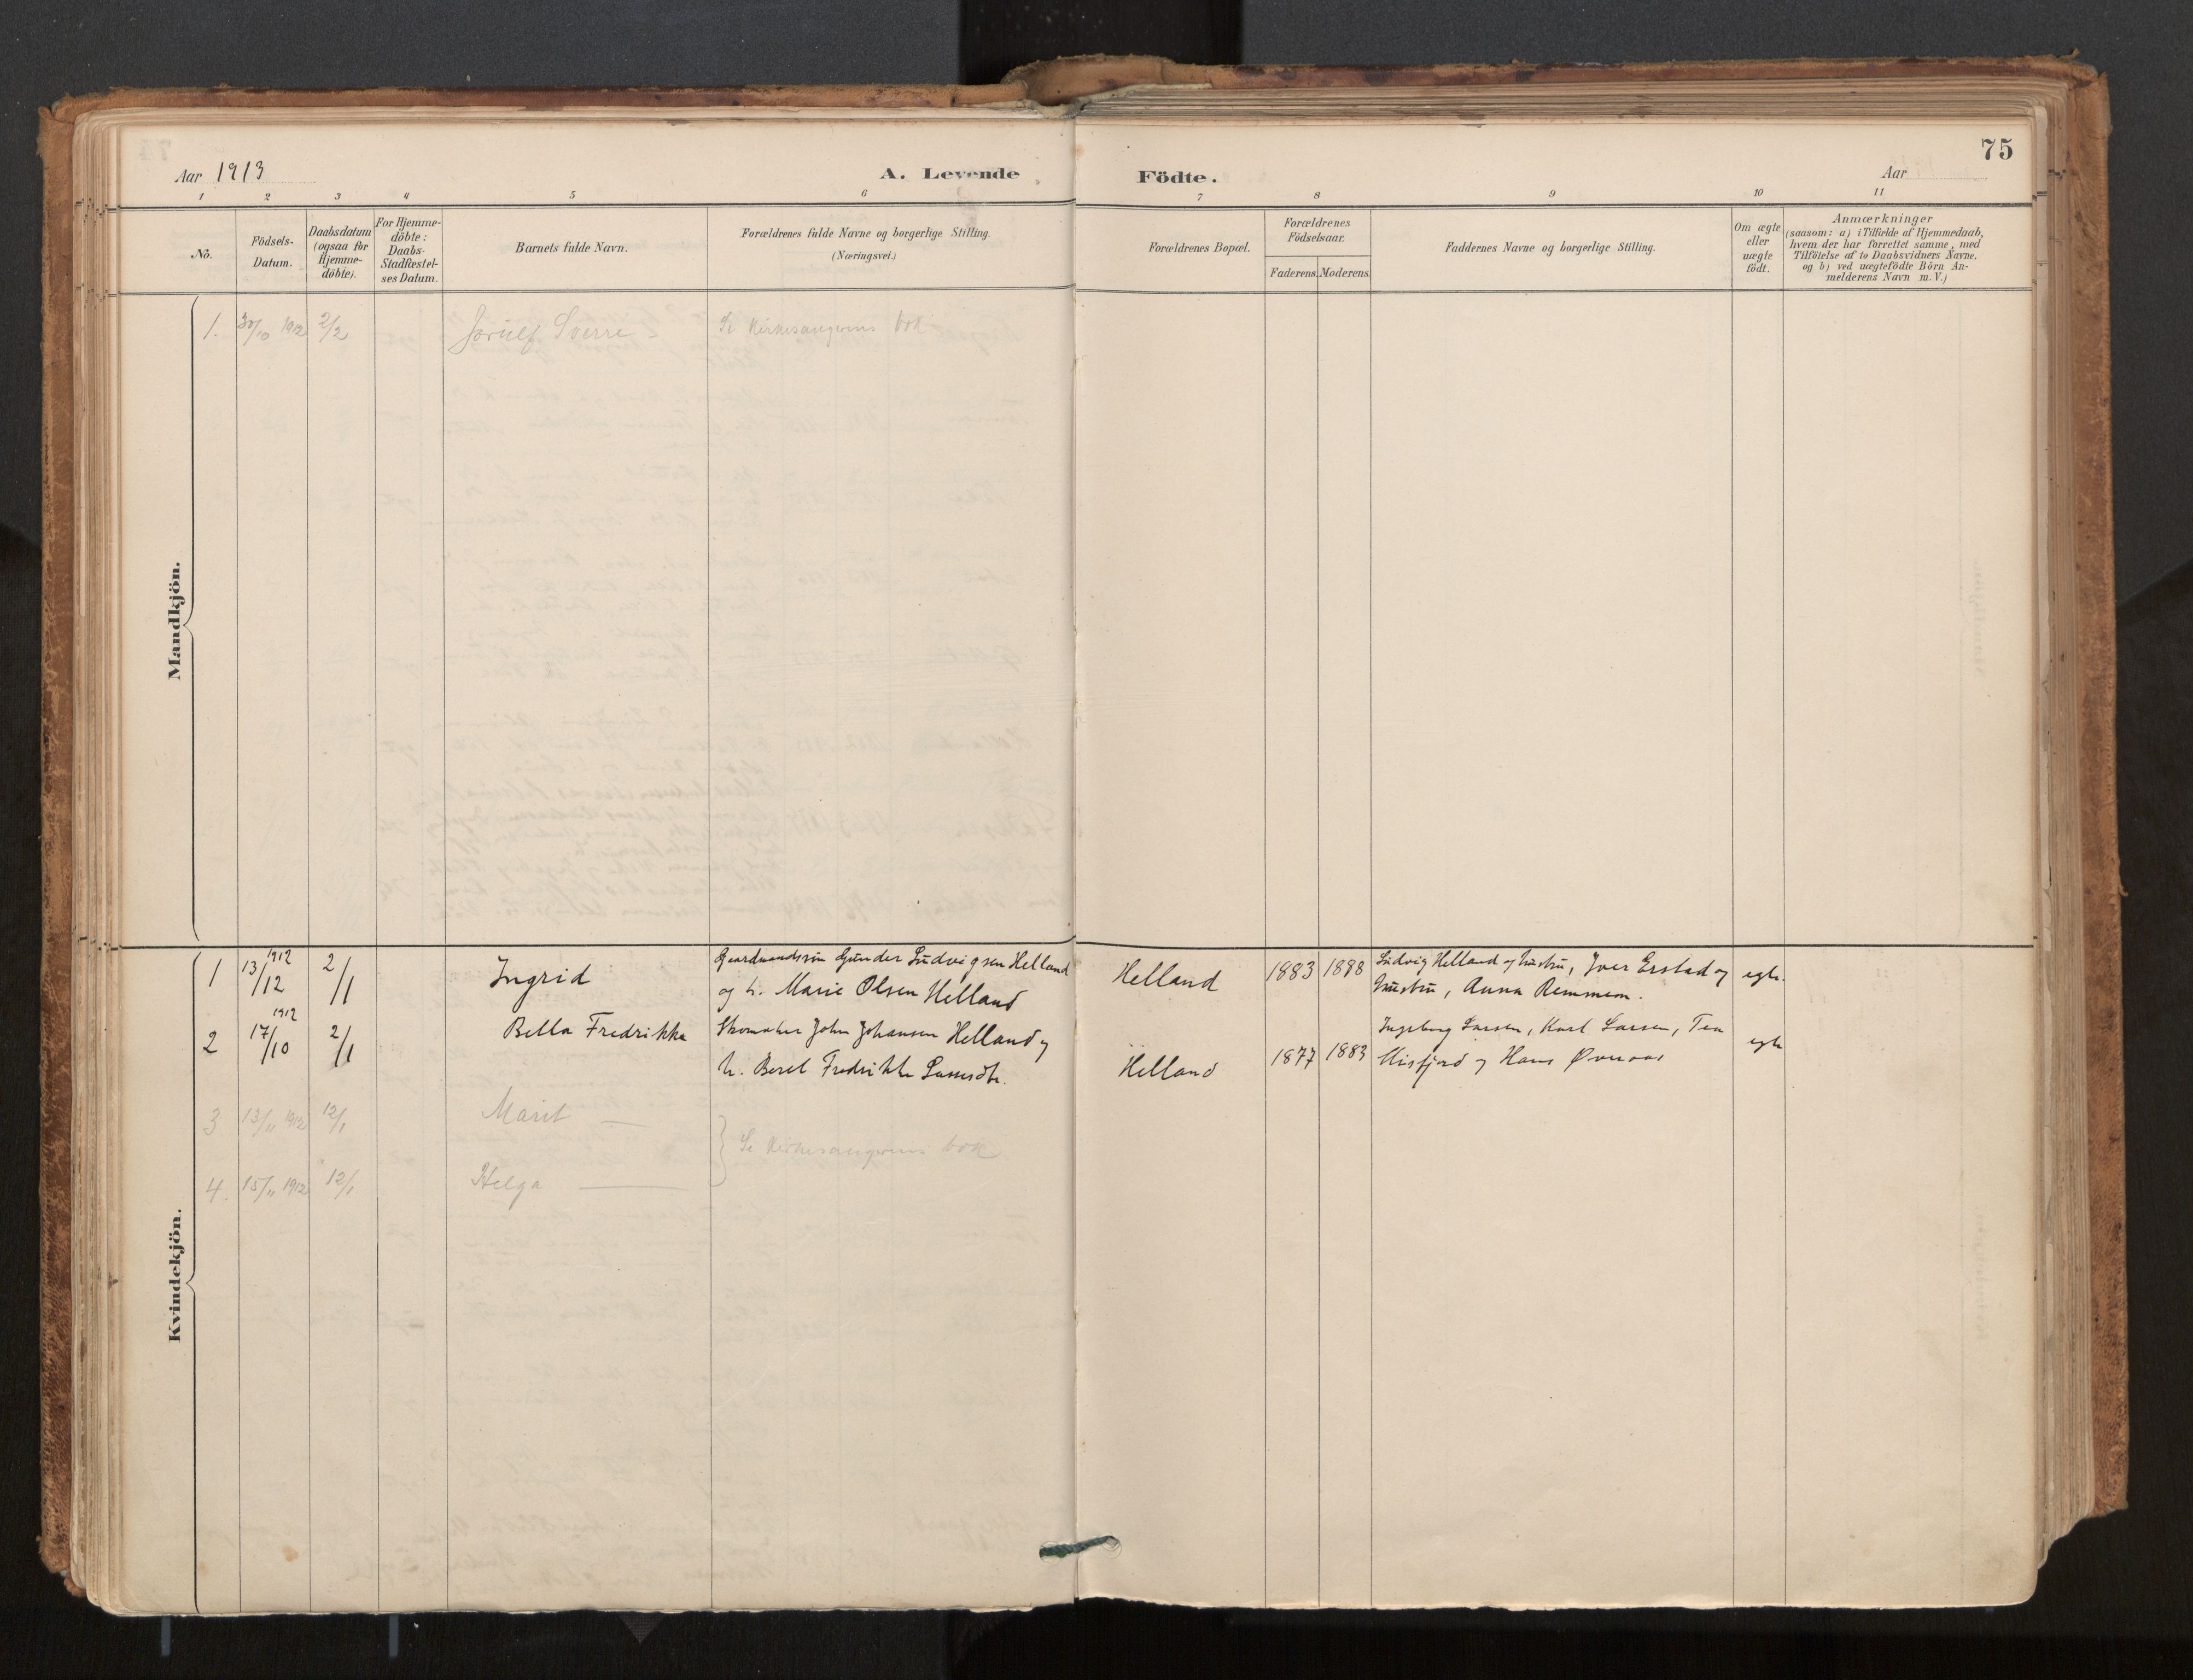 75
Aar 1913
A. Levende Födte.
Aar
1 2 3 4 5 6 7 8 9 10 11
No.
Födsels-
Datum.
Daabsdatum
(ogsaa for
Hjemme-
döbte).
For Hjemme-
döbte:
Daabs-
Stadfæstel-
ses Datum.
Barnets fulde Navn.
Forældrenes fulde Navne og borgerlige Stilling.
(Næringsvei.)
Forældrenes Bopæl.
Forældrenes
Födselsaar.
Faderens. Moderens.
Faddernes Navne og borgerlige Stilling.
Om ægte
eller
uægte
födt.
Anmærkninger
(saasom: a) i Tilfælde af Hjemmedaab,
hvem der har forrettet samme, med
Tilföielse af to Daabsvidners Navne,
og b) ved uægtefödte Börn An-
melderens Navn m. V.)
Mandkjön.
1. 30/10 1912 2/2 Sverre Se kirkesangerens bok
Kvindekjön.
1 13/12 1912 2/1 Ingrid
Gaardmandssön Gunder Ludvigsen Helland
og h. Marie Olsen Helland
Helland 1883 1898
Ludvig Helland og hustru, Iver Erstad og
hustru, Anna Remmem.
egte.
2 17/10 1912 2/1 Bella Fredrikka
Skomaker John Johansen Helland og
h. Beret Fredrikke
Helland 1877 1883
Ingeborg Larsen, Karl Larsen, Tea
Misfjord og Hans Øveraas
egte
3 13/11 1912 12/1 Marit —
} Se kirkesangerens bok
4. 15/11 1912 12/1 Helga —